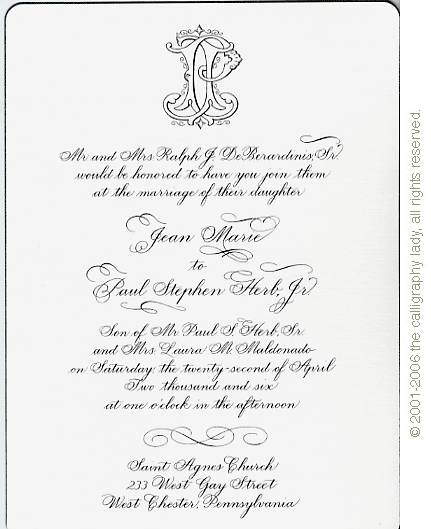 JP
Mr and Mrs Ralph J. DeBerardinis, Sr.
would be honored to have you join them
at the marriage of their daughter
Jean Marie
to
Paul Stephen Herb, Jr.
Son of Mr Paul S. Herb, Sr.
and Mrs. Laura M. Maldonado
on Saturday, the twenty-second of April
Two thousand and six
at one o'clock in the afternoon
Saint Agnes Church
233 West Gay Street
West Chester, Pennsylvania
© 2001-2006 the calligraphy lady, all rights reserved.